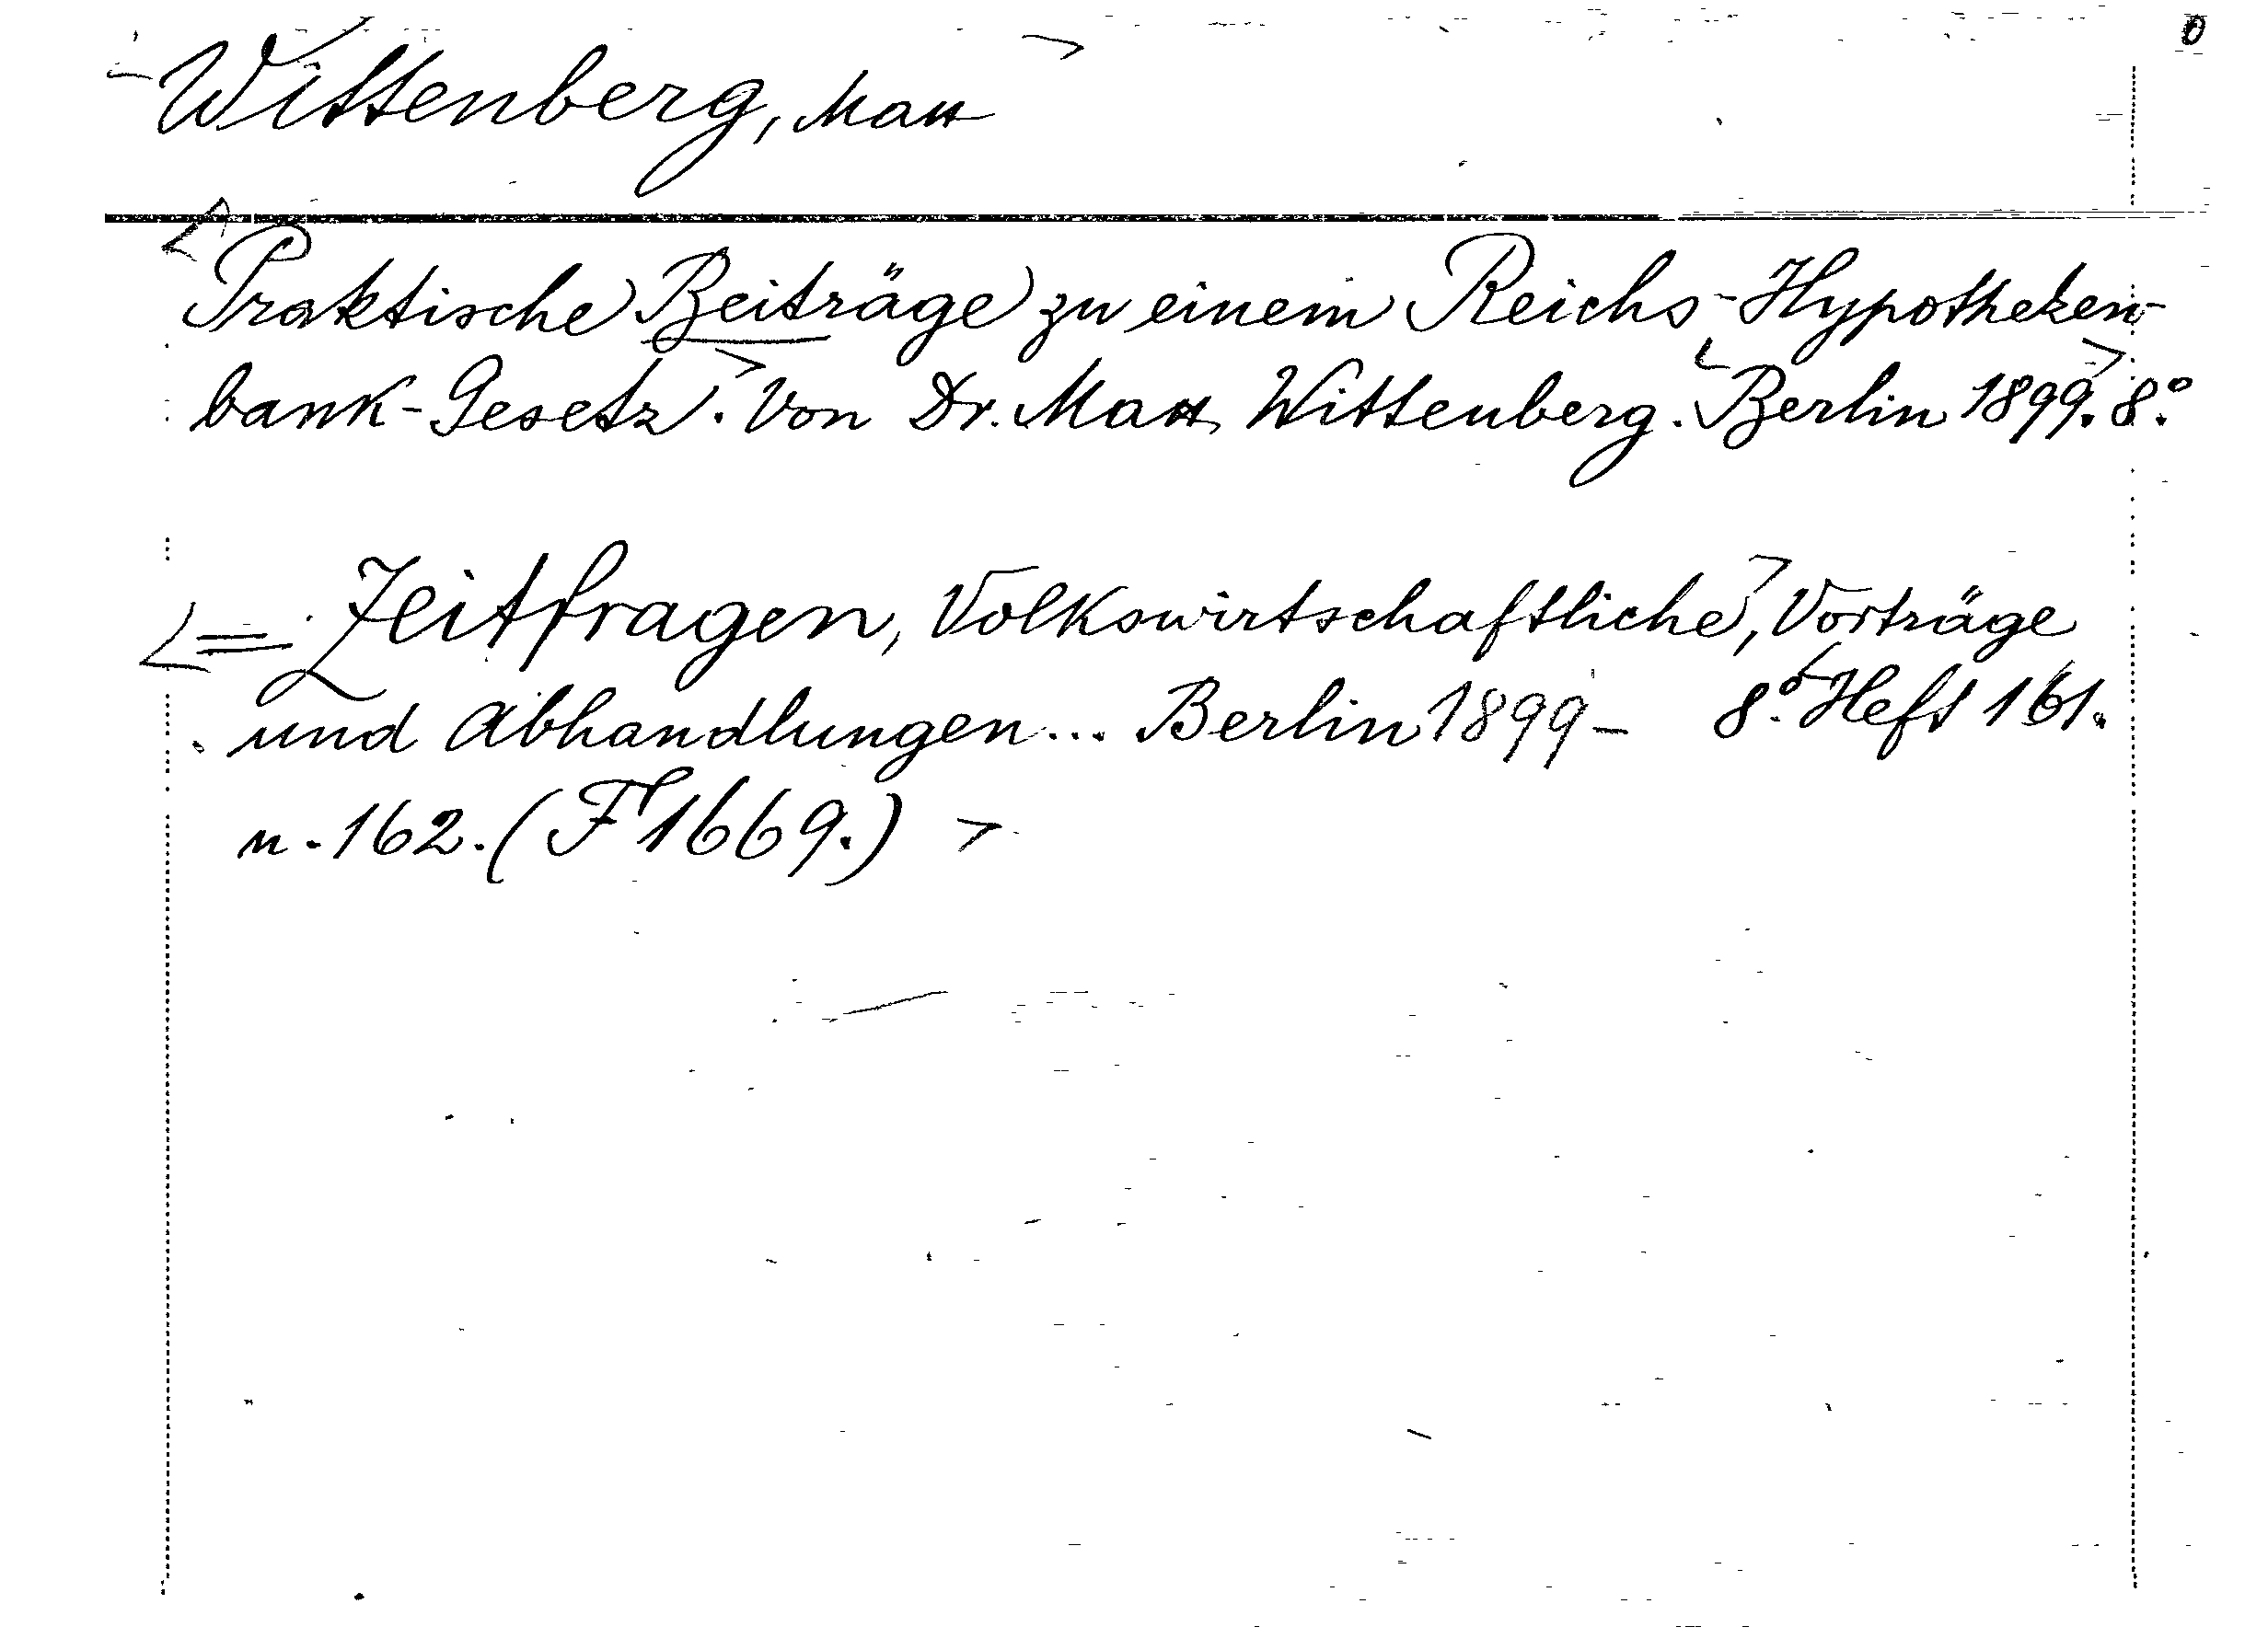 Wittenberg, Max
Praktische Beiträge zu einem Reichs-Hypotheken-
bank-Gesetz. Von Dr. Max Wittenberg. Berlin 1899. 8°.
= Zeitfragen, Volkswirtschaftliche, Vorträge
und Abhandlungen... Berlin 1899- 8°. Heft 161.
u. 162. (Fr 1669.)